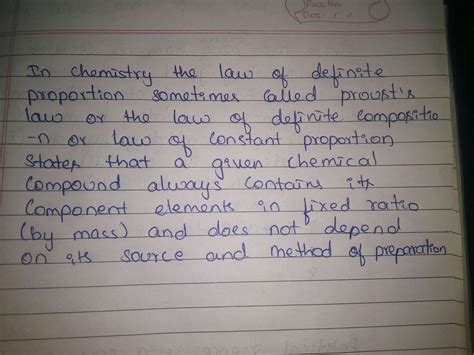 Page No.
Date: / /
In chemistry the law of definite
proportion sometimes called proust's
law or the law of definite compositio
-n or law of constant proportion
states that a given chemical
compound always contains its
component elements in fixed ratio
(by mass) and does not depend
on its source and method of preparation